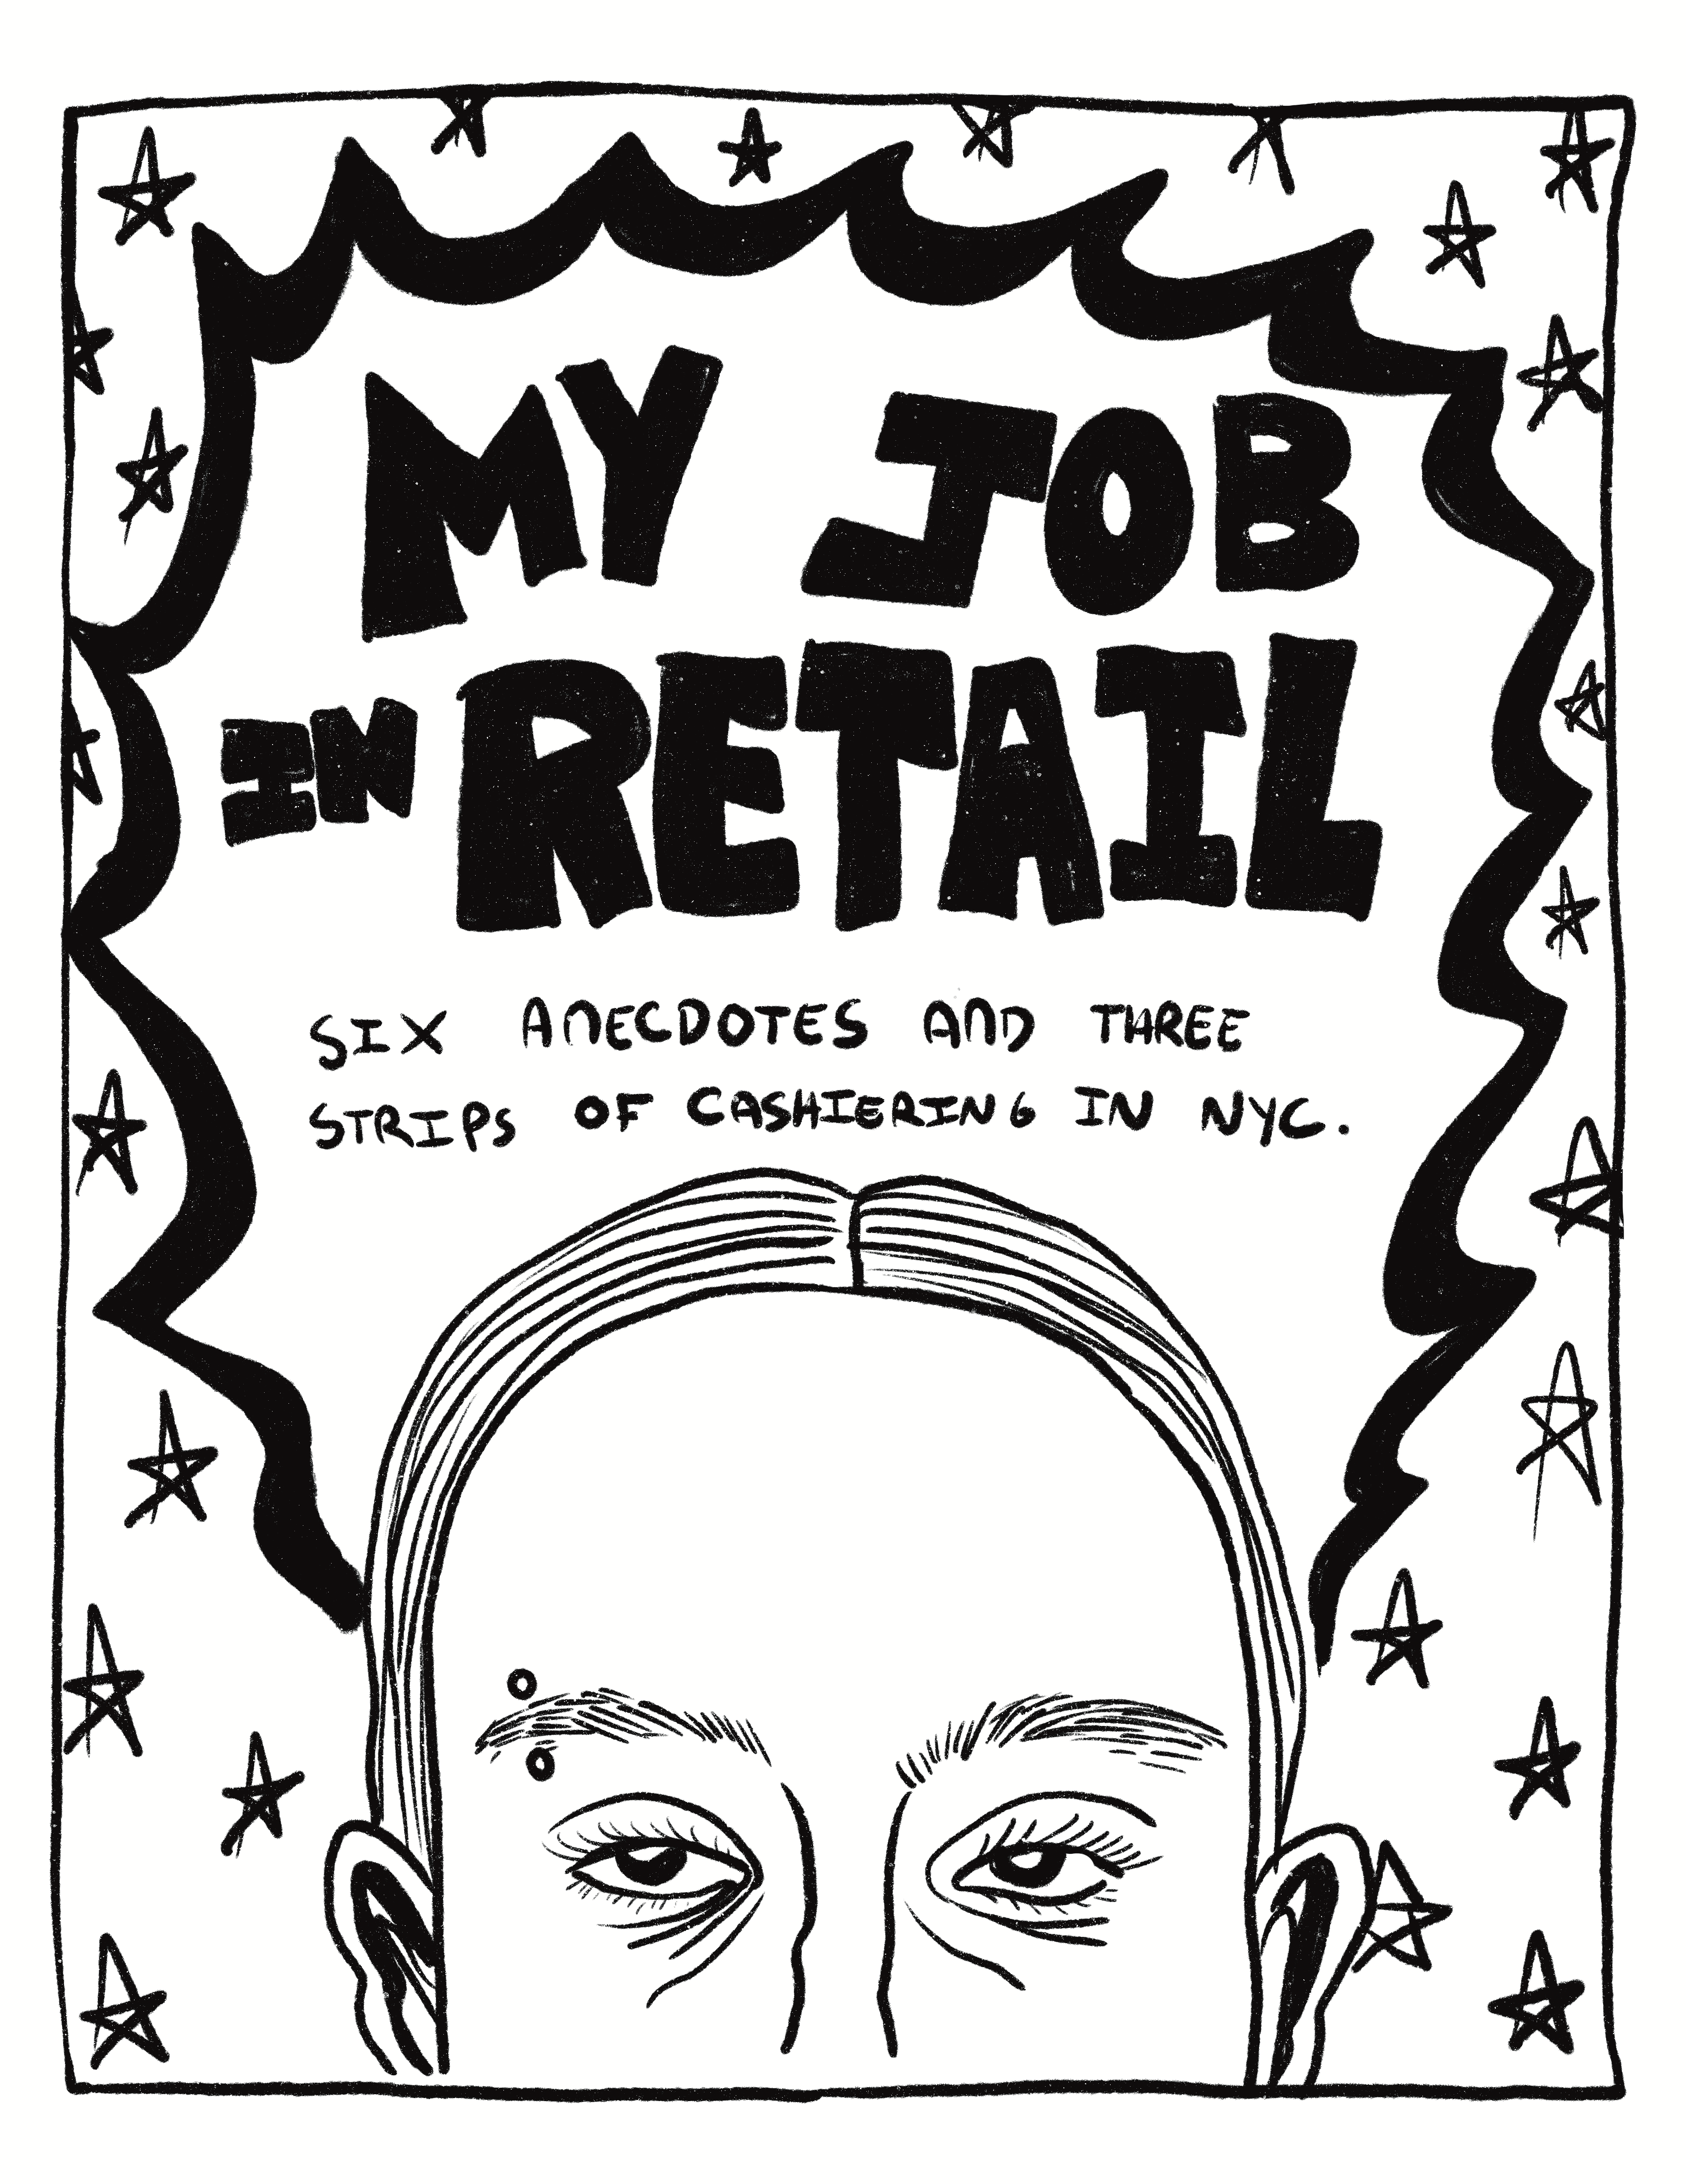 MY JOB
IN RETAIL
SIX ANECDOTES AND THREE
STRIPS OF CASHIERING IN NYC.